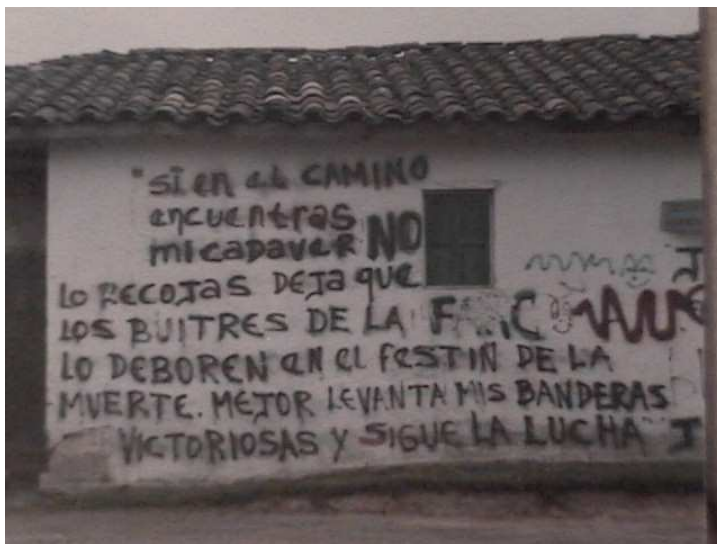 "SI en eL CAMINO
encuentras
mi CADAVER NO
LO RECOJAS DEJA QUE
LOS BUITRES DE LA FARC
LO DEBOREN en el FESTIN DE LA
MUERTE. MEJOR LEVANTA MIS BANDERAS
VICTORIOSAS Y SIGUE LA LUCHA"